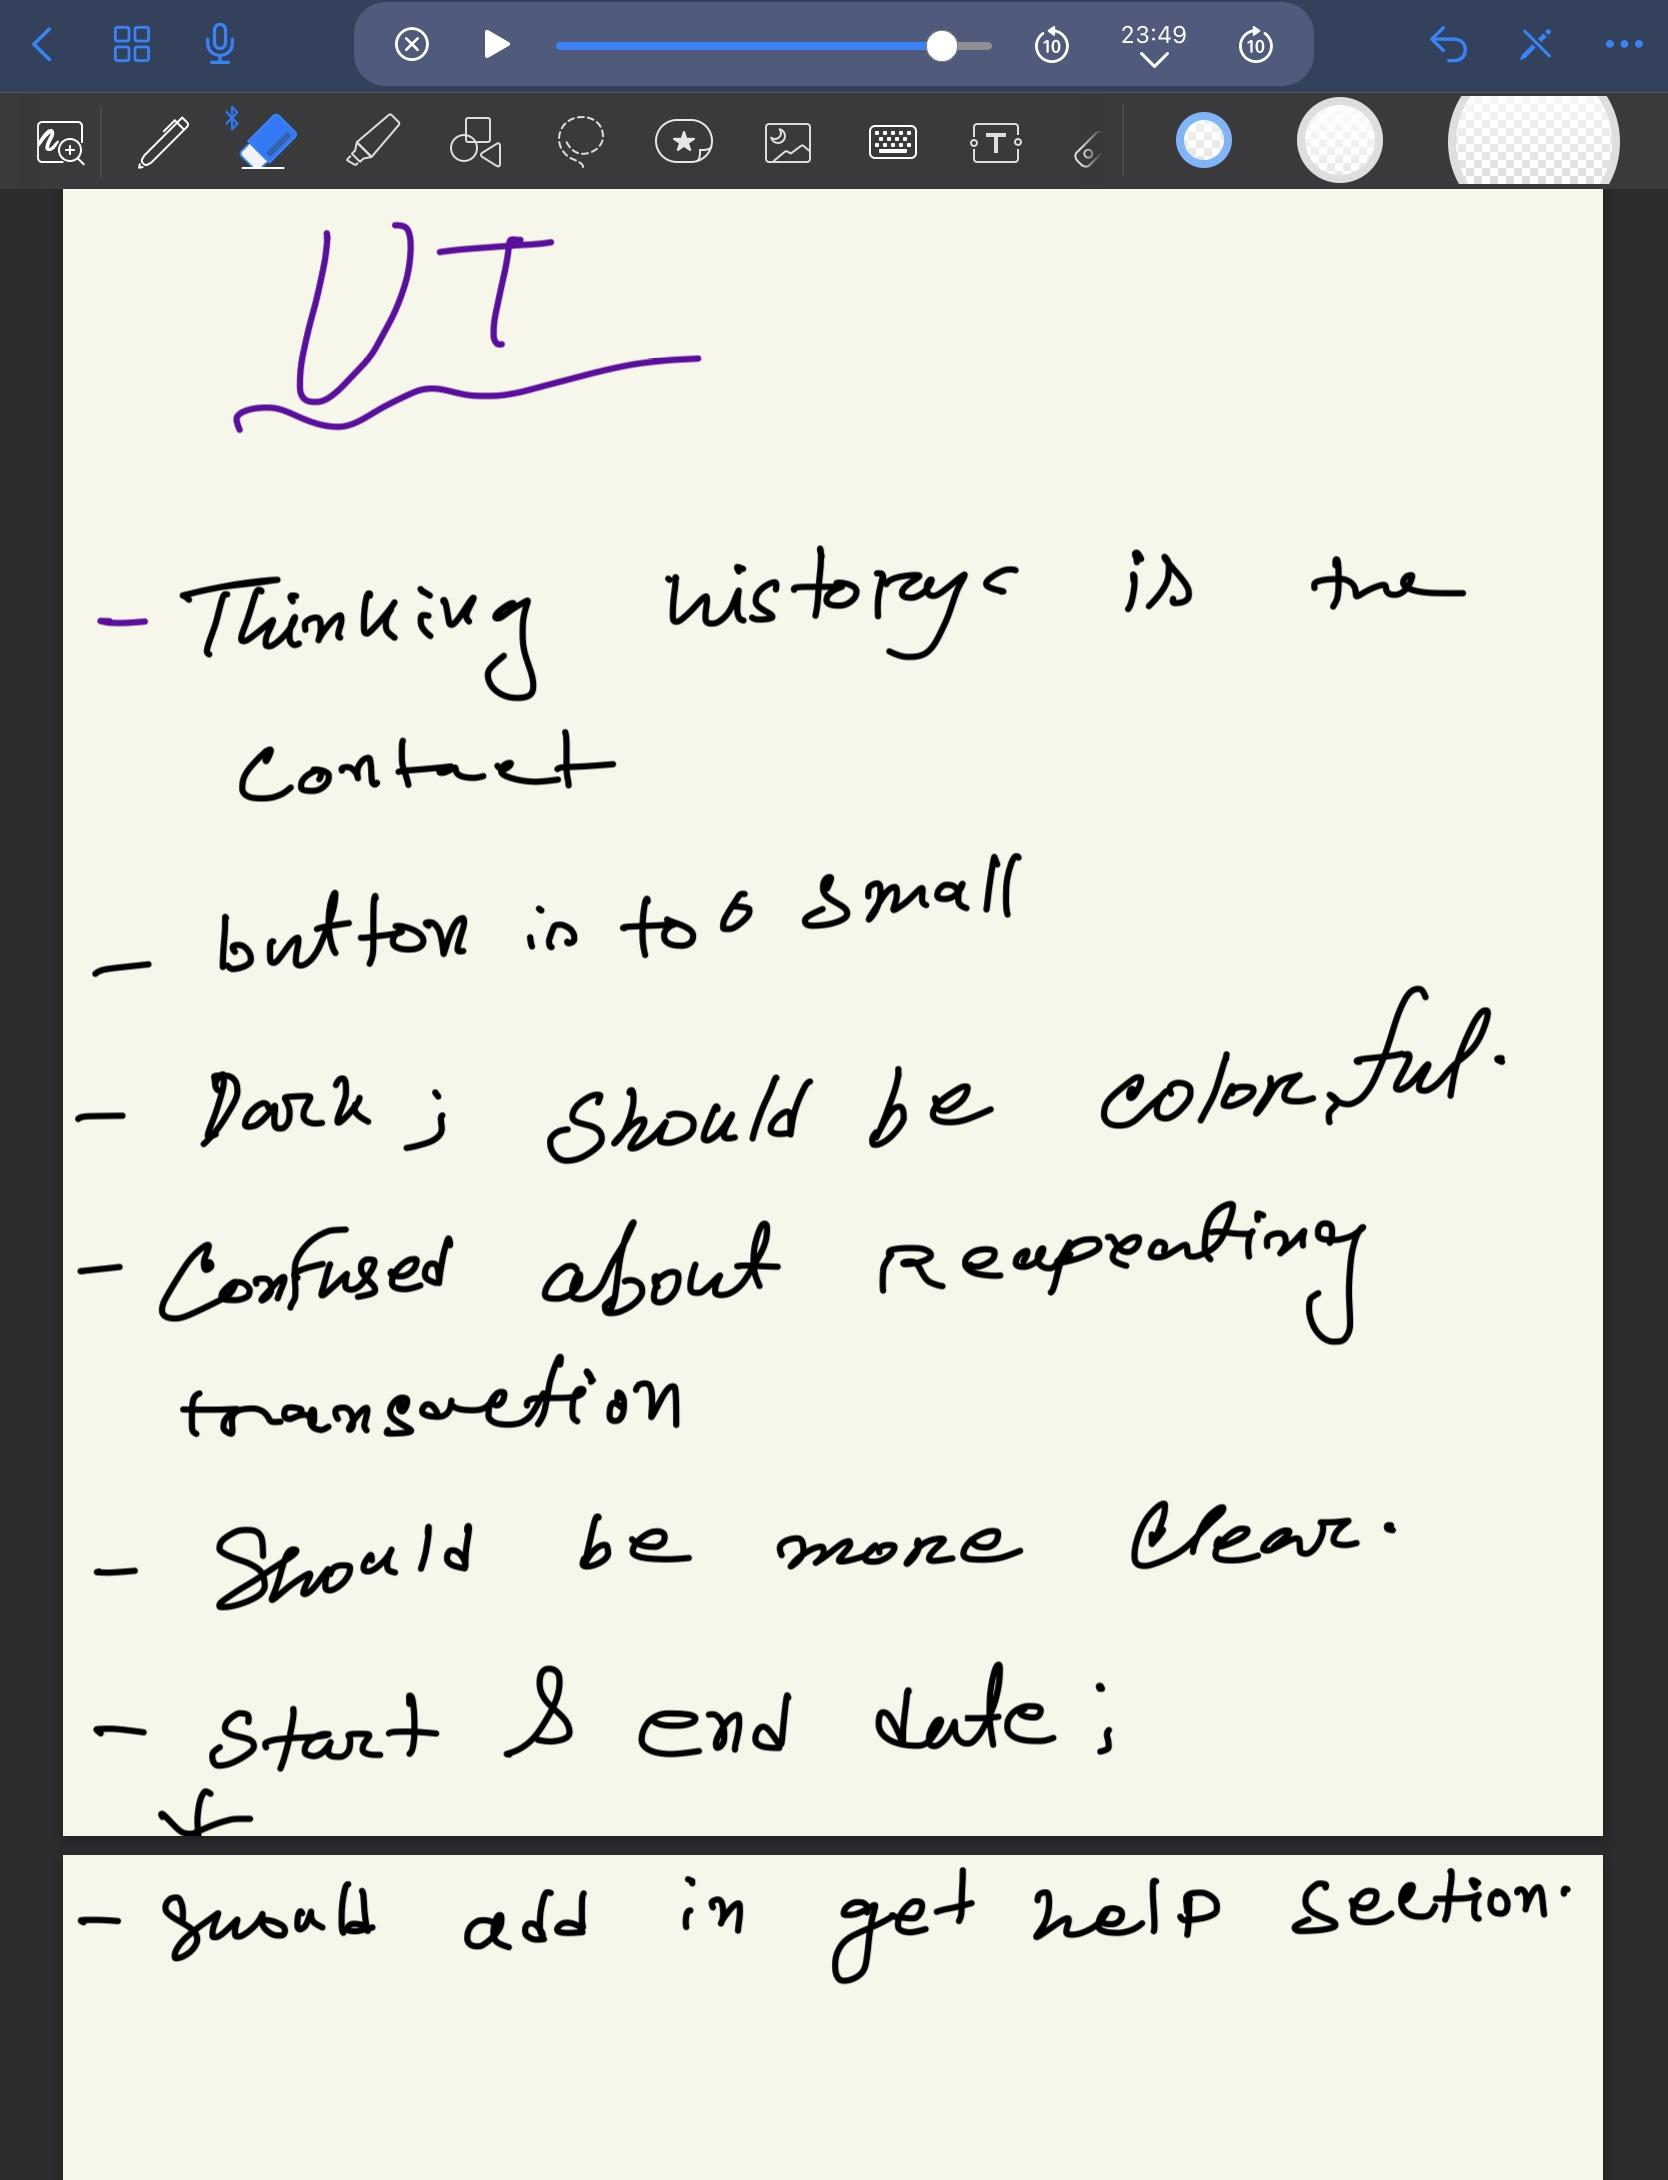 10 23:49 10
T
UT
- Thinking historys is the
contact
- button is too small
- Dark ; should be colorful.
- Confused about Reapeating
transaction
- Should be more clear.
- start & end date ;
- should add in get help section.